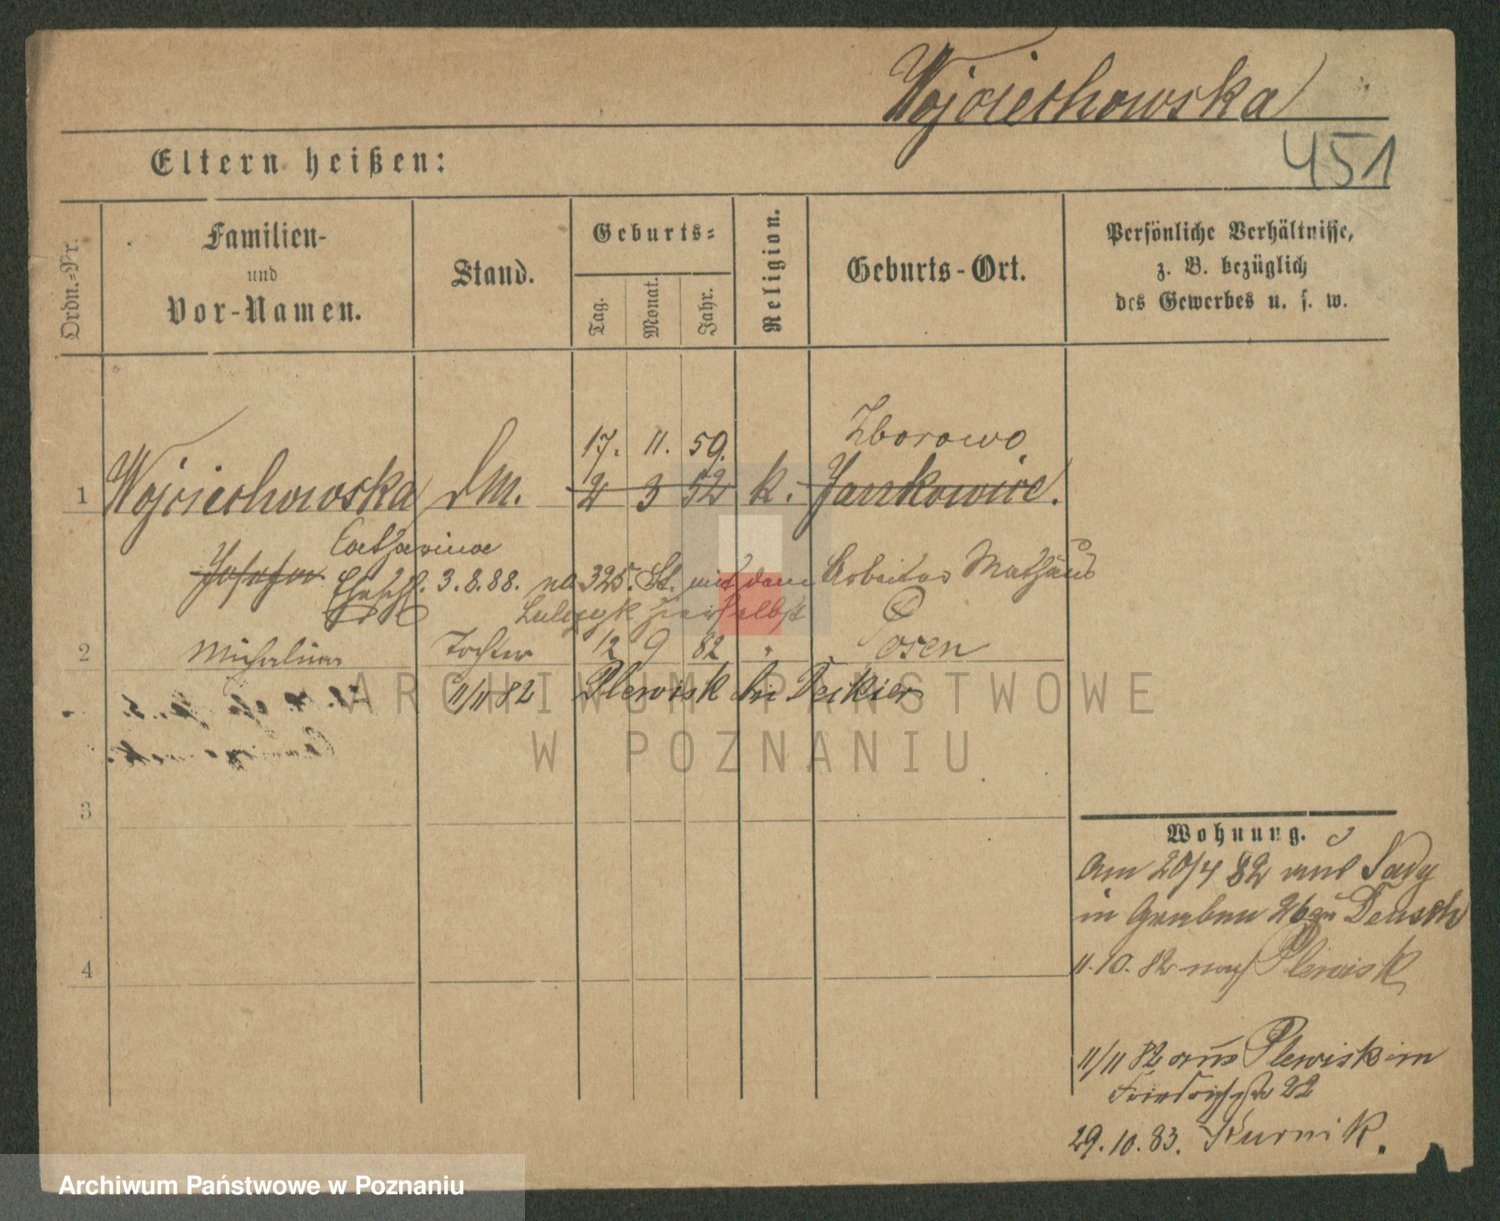 Wojciechowska
451
Eltern heißen:
Ordn.-Nr.
Familien-
und
Vor-Namen.
Stand.
Geburts-
Tag.
Monat.
Jahr.
Religion.
Geburts-Ort.
Persönliche Verhältnisse,
z. B. bezüglich
des Gewerbes u. s. w.
17. 11. 59. Zborowo
1 Wojciechowska dM. 2 3 52 k. Jankowice.
Catharina
Josefa Eheschl. 3.8.88. No 325. St. mit dem Arbeiter Mathäus
hierselbst
2 Michalina Tochter 12 9 82 " Posen
11/11 82 Plewisk bei
3
4
Wohnung.
Am 20/4 82 aus Sady
in Graben 26 Deutsch
11.10.82 nach Plewisk
11/11 82 aus Plewisk in
Friedrichstr 22
29.10.83. Kurnik.
ARCHIWUM PAŃSTWOWE
W POZNANIU
Archiwum Państwowe w Poznaniu